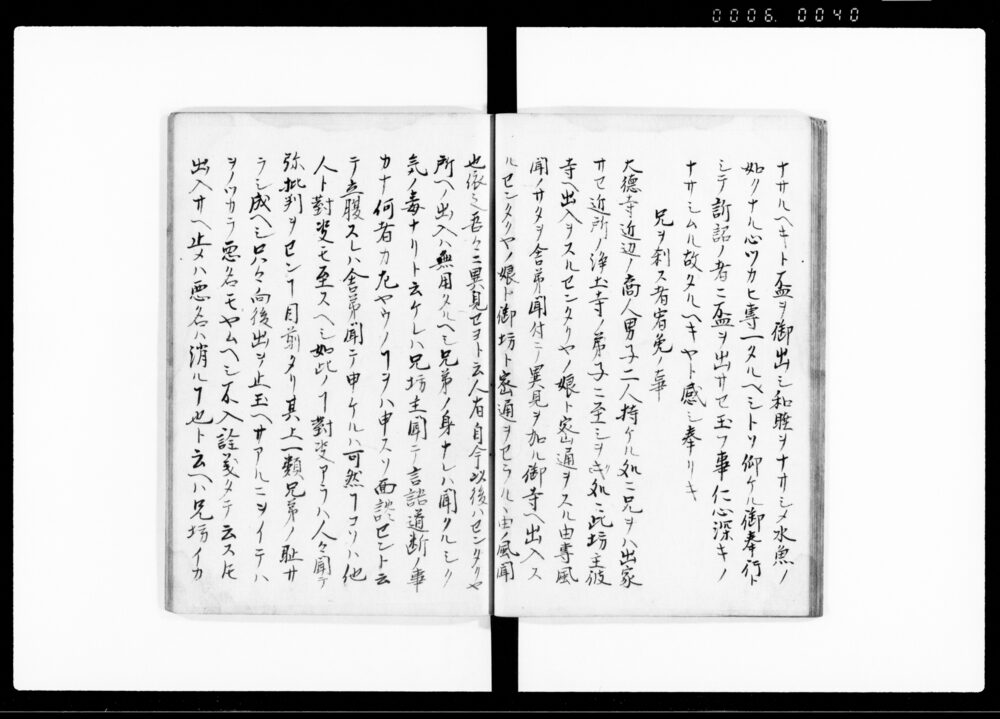 0006. 0040
ナサルヘキト盃ヲ御出シ和睦ヲナサシメ水魚ノ
如クナル心ツカヒ専一タルヘシトソ仰ケル御奉行ト
シテ訴詔ノ者ニ盃ヲ出サセ玉フ事仁心深キノ
ナサシムル故タルヘキヤト感シ奉リキ
兄ヲ刹ス者宥免ノ事
大德寺近辺ノ商人男子二人持ケル処ニ兄ヲハ出家
サセ近所ノ浄土寺ノ弟子ニ至シヲキ処ニ此坊主彼
寺ヘ出入ヲスルセンタクヤノ娘ト密通ヲスル由専風
聞ノサタヲ舎弟聞付テ異見ヲ加ル御寺ヘ出入ス
ルセンタクヤノ娘ト御坊ト密通ヲセラルヽ由ノ風聞
也依之吾々ニ異見セヨト云人有自今以後ハセンタクヤ
所ヘノ出入ハ無用タルヘシ兄弟ノ身ナレハ聞クルシク
気ノ毒ナリト云ケレハ兄坊主聞テ言語道断ノ事
カナ何者カ左ヤウノヿヲハ申スソ面談セント云
テ立腹スレハ舎弟聞テ申ケルハ可然ヿコソハ他
人ト對决モ至スヘシ如此ノヿ對决アラハ人々聞テ
弥批判ヲセンヿ目前タリ其上一類兄弟ノ耻サ
ラシ成ヘシ只々向後出ヲ止玉ヘサアルニヲイテハ
ヲノツカラ悪名モヤムヘシ不入詮義タテ云ス𪜈
出入サヘ止メハ悪名ハ消ルヿ也ト云ヘハ兄坊イカ